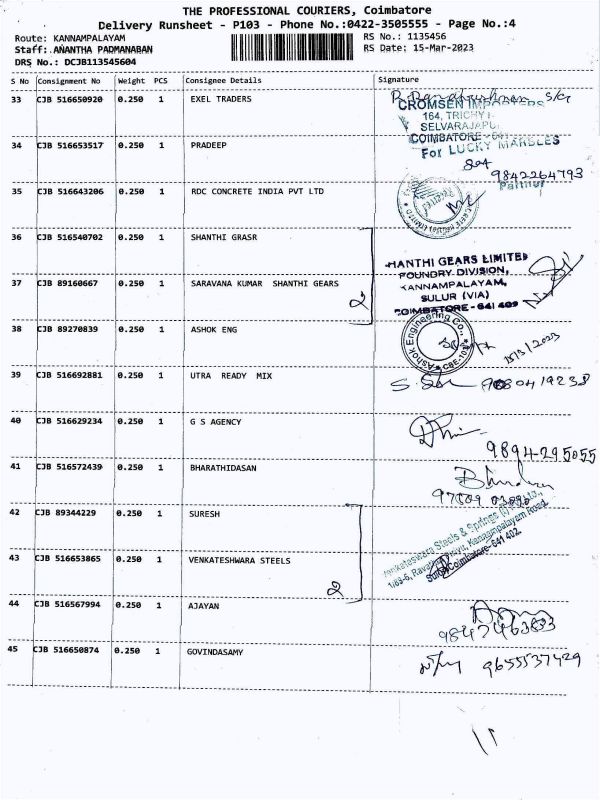 THE PROFESSIONAL COURIERS, Coimbatore
Delivery Runsheet - P103 - Phone No.:0422-3505555 - Page No.:4
Route: KANNAMPALAYAM RS No.: 1135456
Staff: ANANTHA PADMANABAN RS Date: 15-Mar-2023
DRS No.: DCJB113545604
S No Consignment No Weight PCS Consignee Details Signature
33 CJB 516650920 0.250 1 EXEL TRADERS
CROMSEN
164, TRICHY
SELVARAJAPU
COIMBATORE - 641
34 CJB 516653517 0.250 1 PRADEEP
For LUCKY MARBLES
9842264793
35 CJB 516643206 0.250 1 RDC CONCRETE INDIA PVT LTD
36 CJB 516540702 0.250 1 SHANTHI GRASR
HANTHI GEARS LIMITED
FOUNDRY DIVISION,
37 CJB 89160667 0.250 1 SARAVANA KUMAR SHANTHI GEARS
KANNAMPALAYAM,
SULUR (VIA)
2
COIMBATORE - 641 402
38 CJB 89270839 0.250 1 ASHOK ENG
Ashok Engineering Co.,
CBE-103
15/3/2023
39 CJB 516692881 0.250 1 UTRA READY MIX
40 CJB 516629234 0.250 1 G S AGENCY
9894295055
41 CJB 516572439 0.250 1 BHARATHIDASAN
42 CJB 89344229 0.250 1 SURESH
Venkateswara Steels & Springs (I) P Ltd.,
Kannampalayam Road,
Coimbatore-641 402.
43 CJB 516653865 0.250 1 VENKATESHWARA STEELS
2
44 CJB 516567994 0.250 1 AJAYAN
9847463833
45 CJB 516650874 0.250 1 GOVINDASAMY
9655537429
11